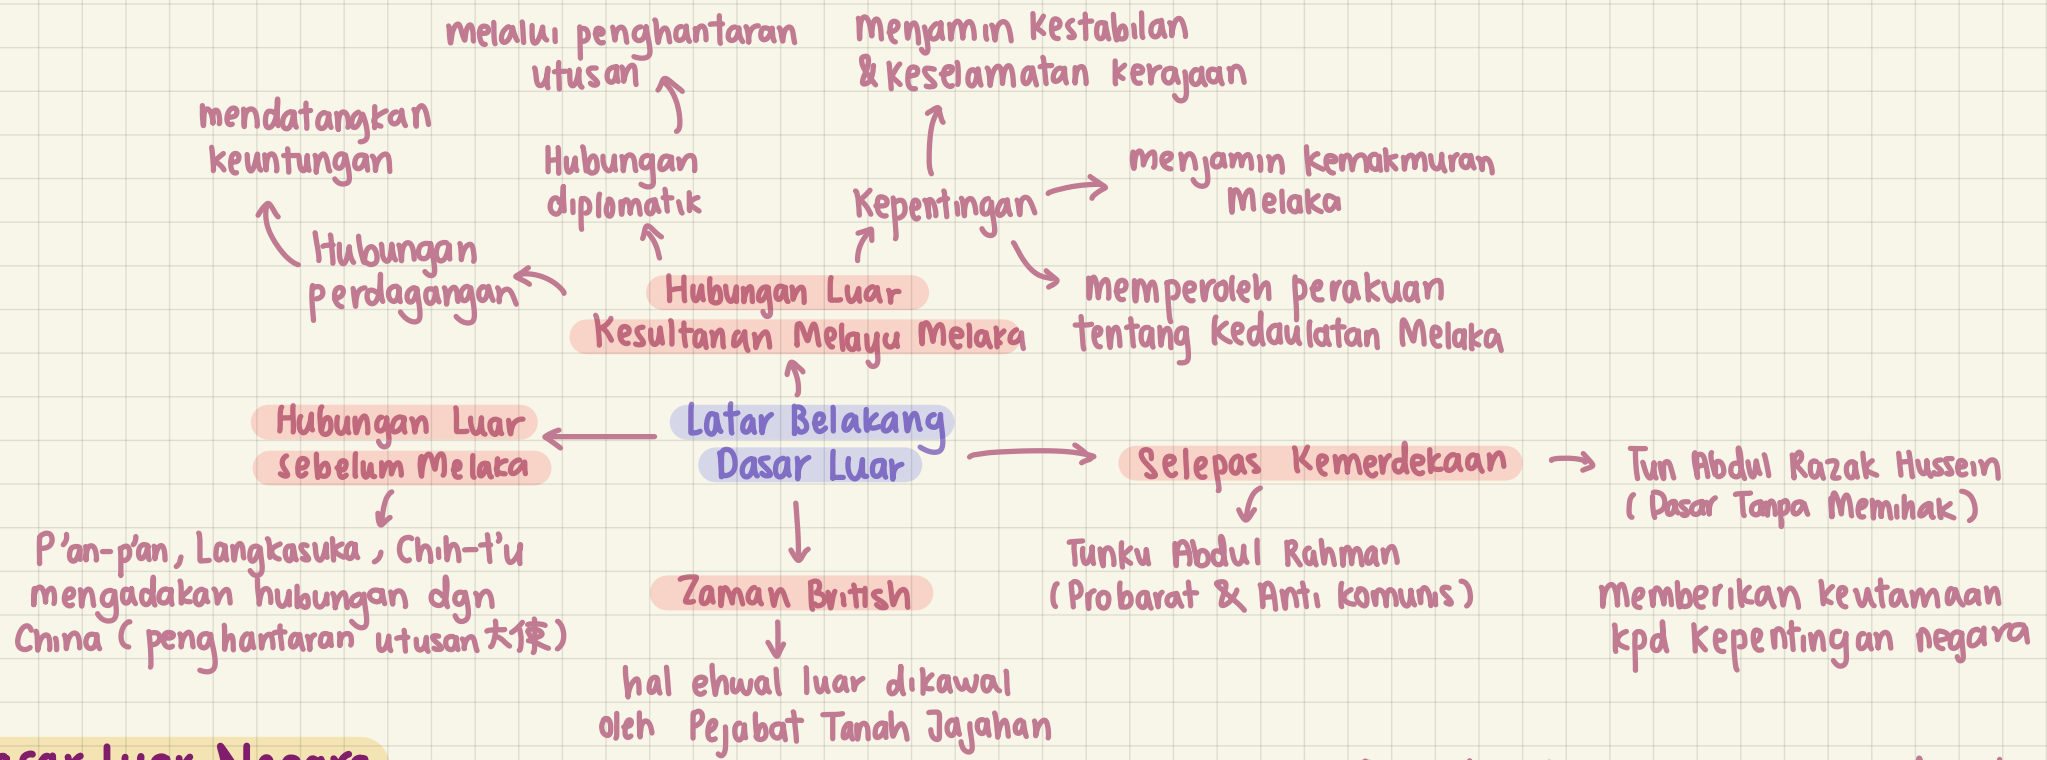 melalui penghantaran
utusan
Menjamin Kestabilan
& Keselamatan Kerajaan
mendatangkan
keuntungan
Hubungan
diplomatik
Kepentingan
menjamin Kemakmuran
Melaka
Hubungan
perdagangan
memperoleh perakuan
tentang Kedaulatan Melaka
Hubungan Luar
Kesultanan Melayu Melaka
Hubungan Luar
sebelum Melaka
Latar Belakang
Dasar Luar
Selepas Kemerdekaan
Tun Abdul Razak Hussein
(Dasar Tanpa Memihak)
P'an-p'an, Langkasuka, Chih-t'u
mengadakan hubungan dgn
China (penghantaran utusan大使)
Zaman British
Tunku Abdul Rahman
(Probarat & Anti komunis)
memberikan keutamaan
kpd kepentingan negara
hal ehwal luar dikawal
oleh Pejabat Tanah Jajahan
Luar Negara